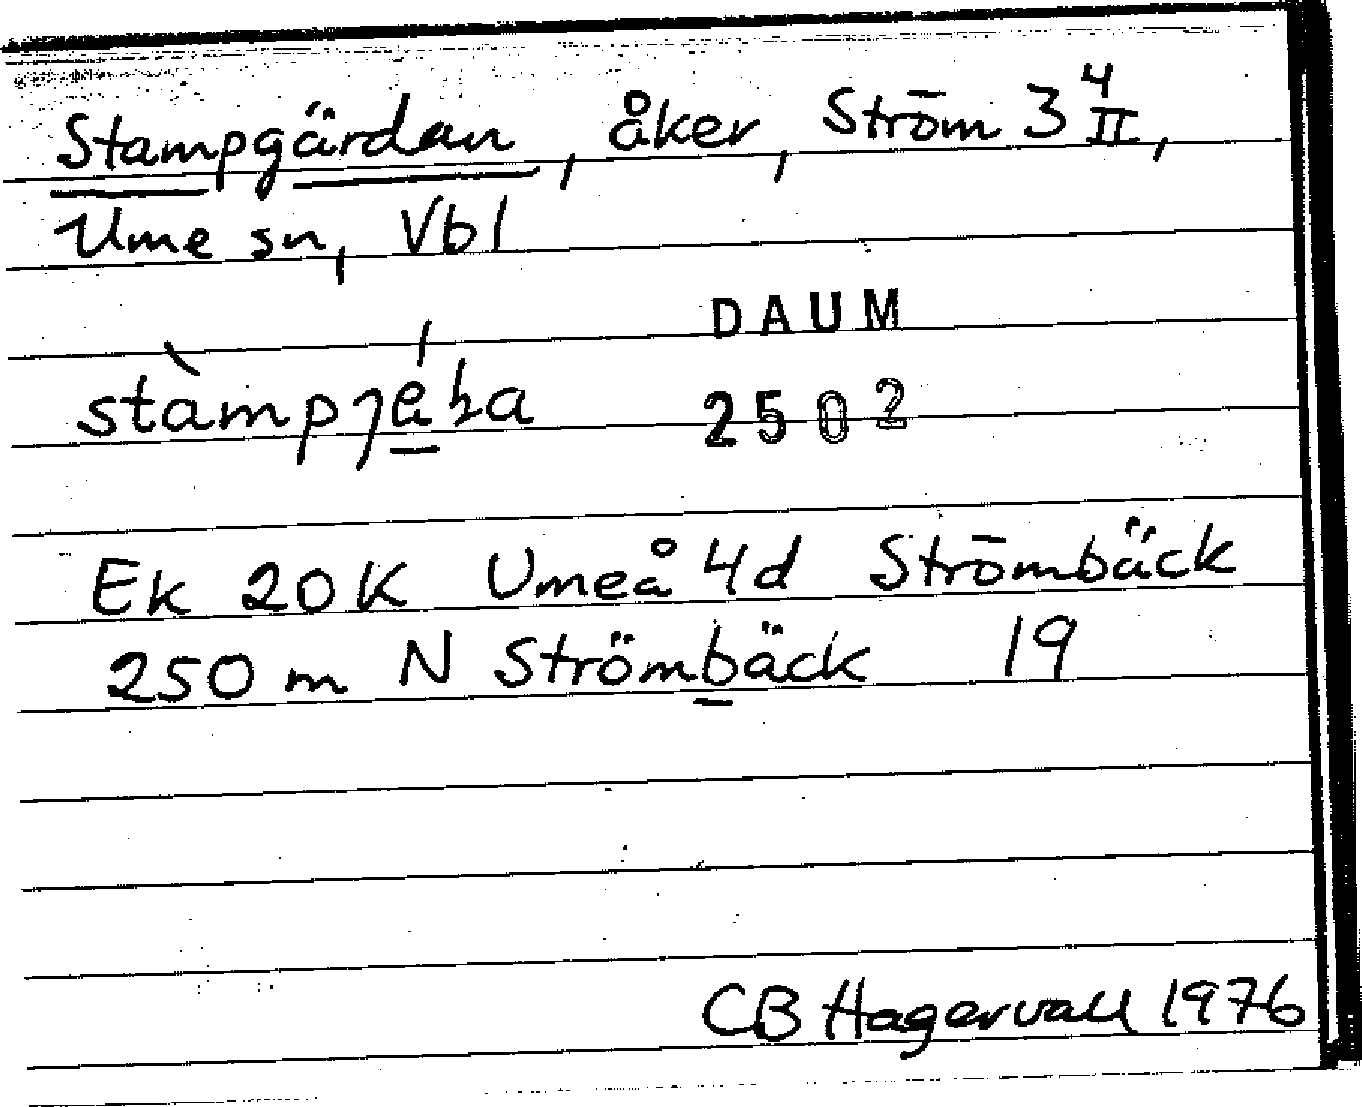 Stampgärdan, åker, Ström 3 4 II,
Ume sn, Vbl
DAUM
2502
Ek 20K Umeå 4d Strömbäck
250 m N Strömbäck 19
CB Hagervall 1976